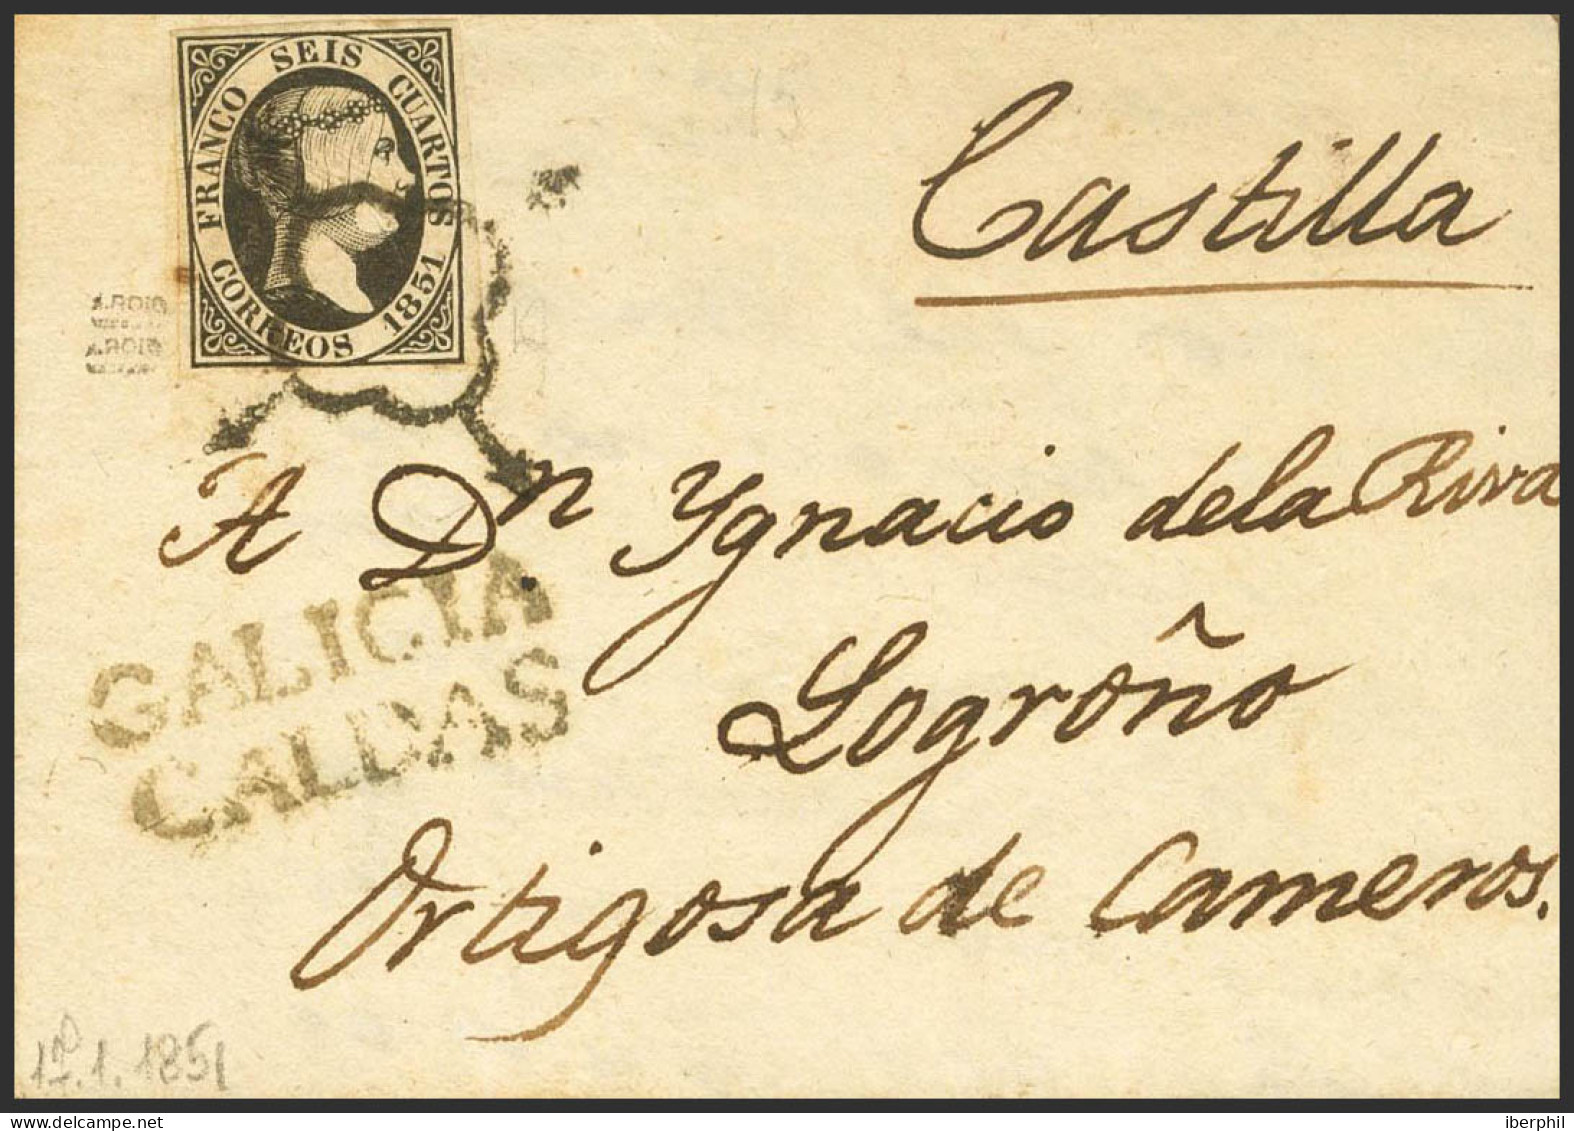 FRANCO SEIS CUARTOS
CORREOS 1851
Castilla
A.ROIG
A.ROIG
A Dn. Ygnacio dela Riva
GALICIA
CALDAS
Logroño
Ortigosa de Cameros.
1º.1.1851
www.delcampe.net
iberphil